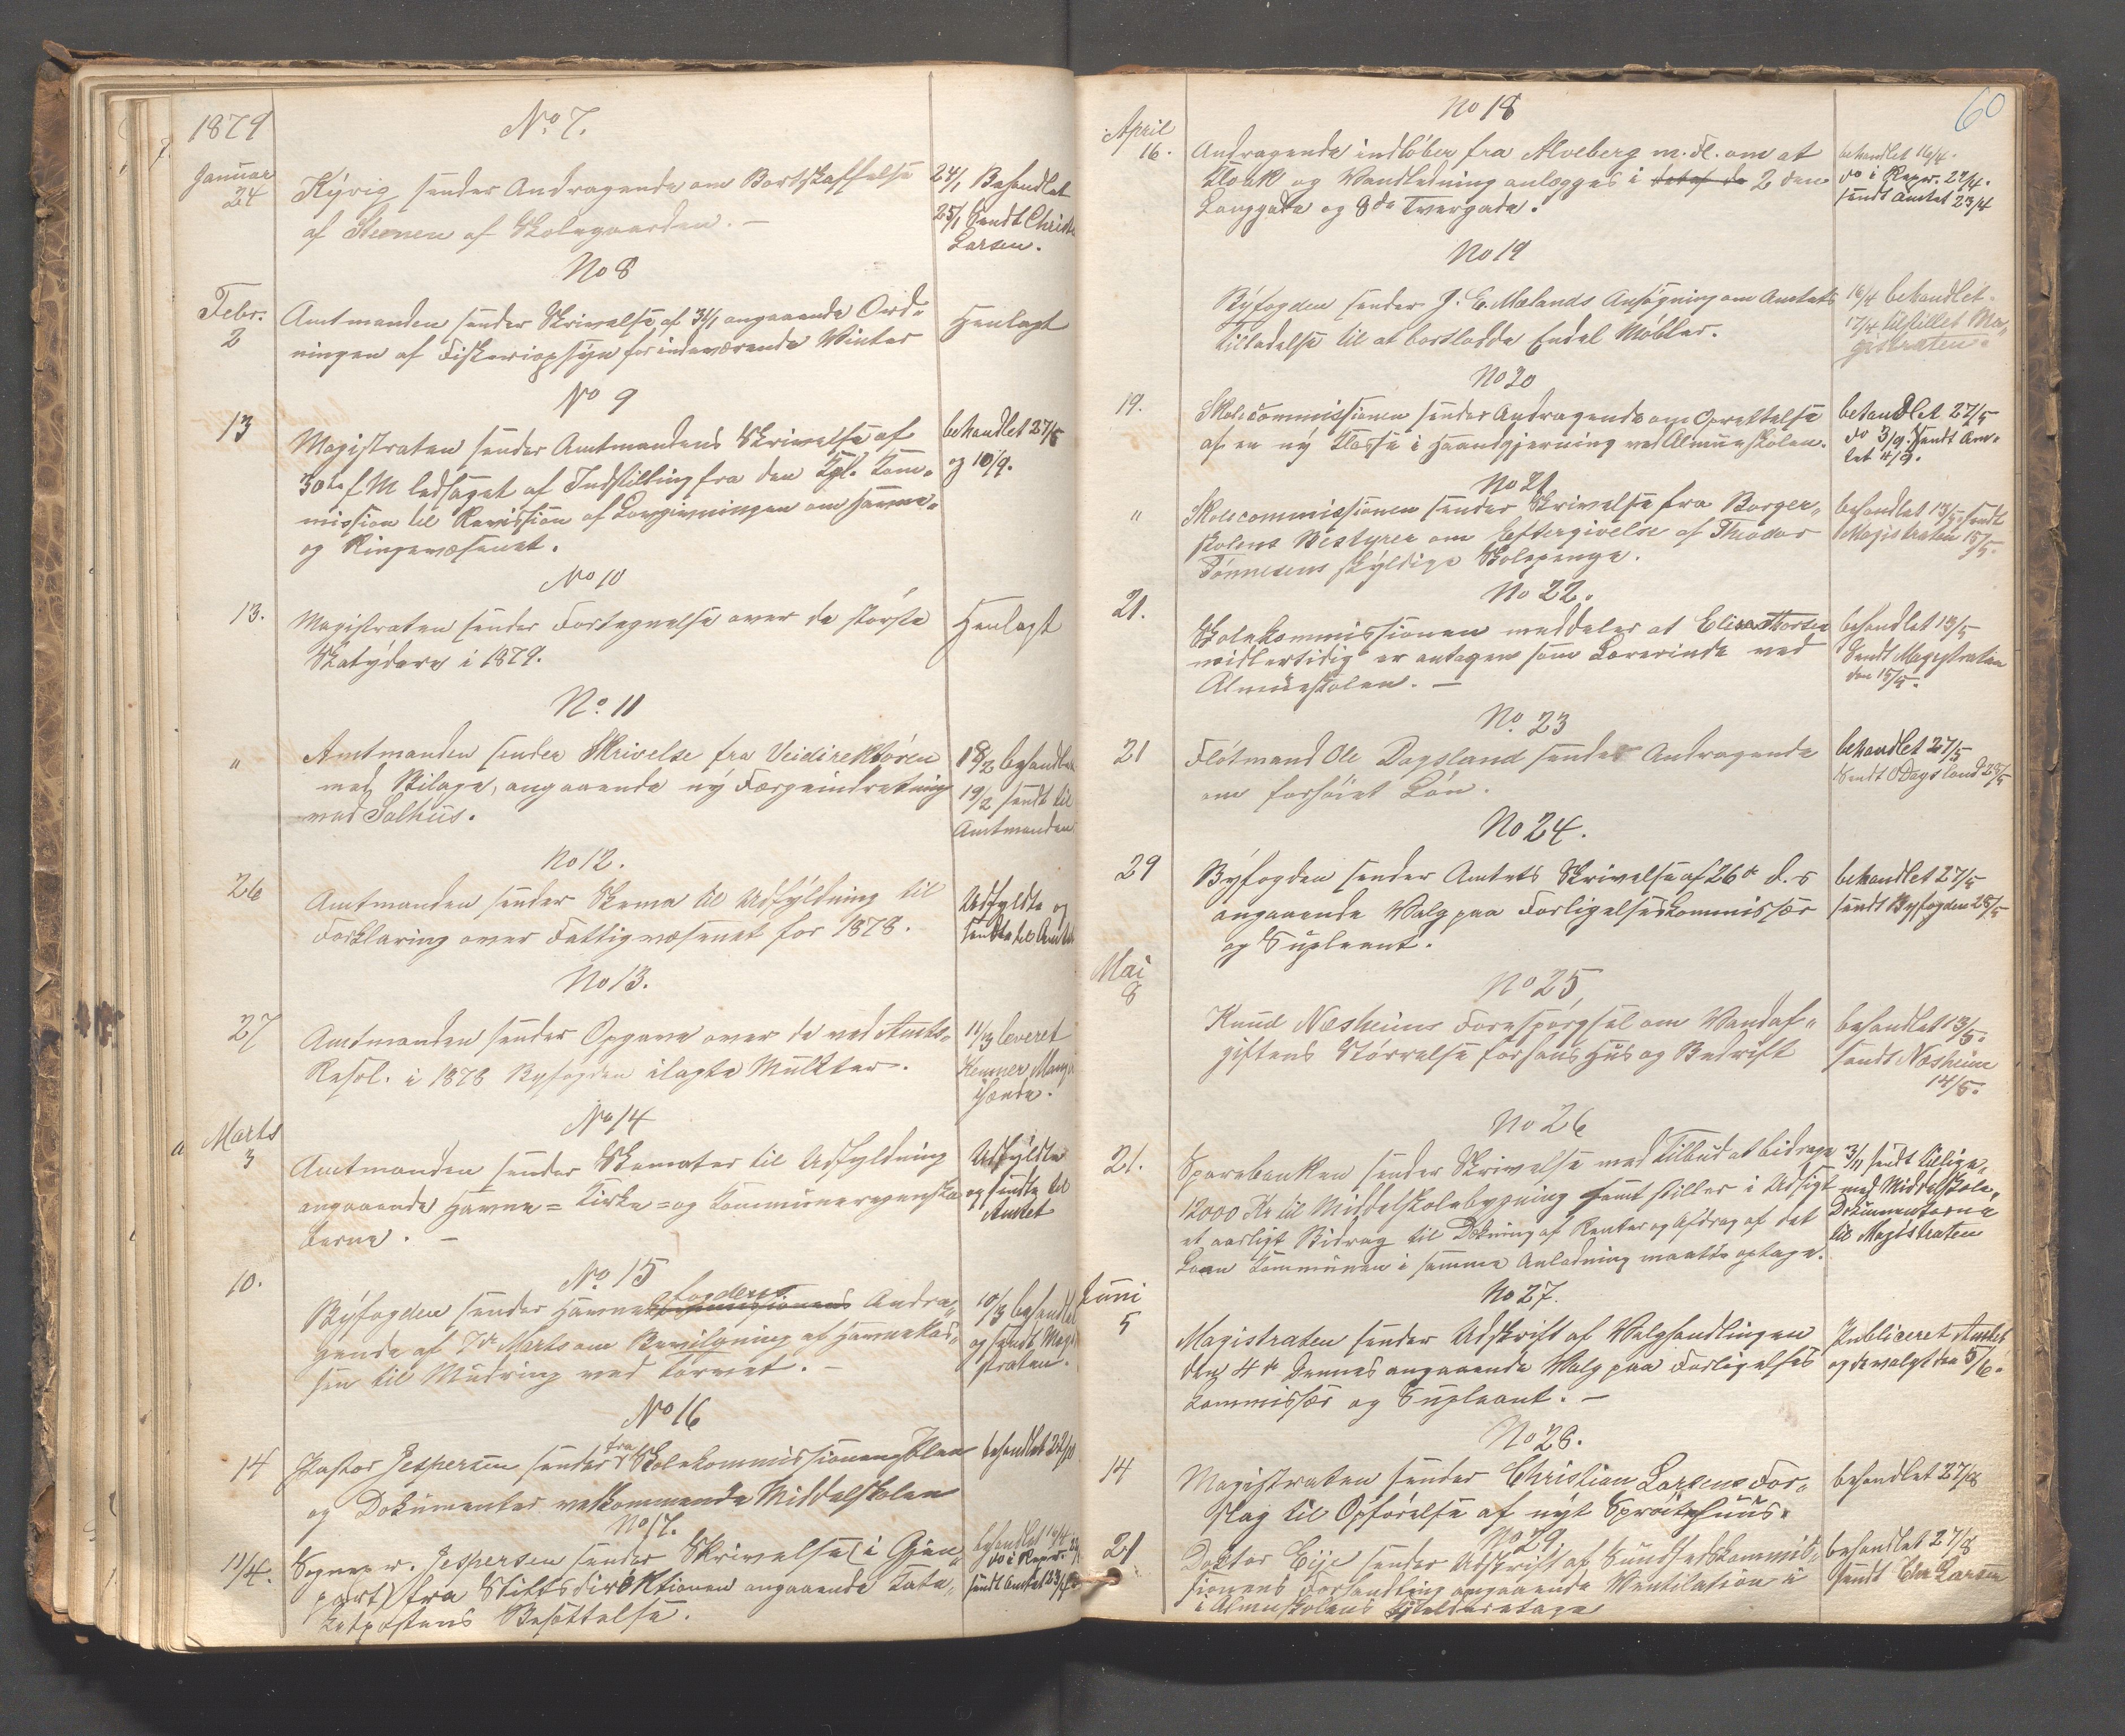 1879
No 7.
Januar
24
Kyvig sender Andragende om Bortskaffelse
af Stenen af Skolegaarden. —
24/1 Behandlet
25/1 Sendt Christ
Larsen.
No 8
Febr.
2
Amtmanden sender Skrivelse af 31/1 angaaende Ord-
ningen af Fiskeriopsyn for indeværende Vinter
Henlagt
No 9
13
Magistraten sender Amtmandens Skrivelse af
30te f. M ledsaget af Indstilling fra den Kgl. Kom-
mission til Revission af Lovgivningen om Havne-
og Ringevæsenet.
behandlet 27/5
og 10/9.
No 10
13.
Magistraten sender Fortegnelse over de største
Skatydere i 1879.
Henlagt
No 11
"
Amtmanden sender Skrivelse fra Veidirektøren
med Bilage, angaaende ny Færgeindretning
ved Salhus.
18/2 behandlet
19/2 sendt til
Amtmanden
No 12.
26
Amtmanden sender Skema til Udfyldning til
Forklaring over Fattigvæsenet for 1878.
Udfyldte og
sendte til Amtet
No 13.
27
Amtmanden sender Opgave over de ved Amts-
Resol. i 1878 Byfogden ilagte Mulkter.
11/3 leveret
Kemner Mange
ihænde.
No 14
Marts
3
Amtmanden sender Skemater til Udfyldning
angaaende Havne= Kirke= og Kommuneregnska-
berne. —
Udfyldte
og sendte til
Amtet
No 15
10.
Byfogden sender Havnefogdens Andra-
gende af 7de Marts om Bevilgning af Havnekas-
sen til Mudring ved Torvet. —
10/3 behandlet
og sendt Magi
straten.
No 16
14
Pastor Jespersen sender fra Skolekommissionens Plan
og Dokumenter vedkommende Middelskolen
behandlet 22/3
No 17.
11/4.
Sognepr. Jespersen sender Skrivelse (i Gjen-
part) fra Stiftsdirektionen angaaende Kate-
ketpostens Besættelse.
behandlet 16/4
do i Repr. 22/4
sendt Amtet 23/4
60
No 18
April
16.
Andragende indløber fra Alveberg m. Fl. om at
Kloak og Vandledning anlægges i 2den
Langgade og 8de Tvergade.
behandlet 16/4.
do i Repr. 22/4.
sendt Amtet 23/4
No 19
Byfogden sender J. E. Mælands Ansøgning om Amtets
Tilladelse til at bortlodde Endel Møbler.
16/4 behandlet.
17/4 tilstillet Ma-
gistraten.
No 20
19.
Skolecommissionen sender Andragende om Oprettelse
af en ny Klasse i Haandgjerning ved Almueskolen.
behandlet 27/5
do 3/9. Sendt Am-
tet 4/9.
No 21
"
Skolecommissionen sender Skrivelse fra Borger-
skolens Bestyrer om Eftergivelse af Theodor
Tønnesens skyldige Skolepenge.
behandlet 13/5, sendt
Magistraten 15/5.
No 22.
21.
Skolekommissionen meddeler at Elise Thorsen
midlertidig er antagen som Lærerinde ved
Almueskolen. —
behandlet 13/5
Sendt Magistraten
den 15/5.
No 23
21
Fløtmand Ole Dagsland sender Andragende
om forhøiet Løn.
behandlet 27/5
Sendt O Dagsland 28/5
No 24.
29
Byfogden sender Amtets Skrivelse af 26de d.s
angaaende Valg paa Forligelseskommissær
og Supleant.
behandlet 27/5
sendt Byfogden 28/5
Mai
8
No 25
Knud Næsheims Forespørgsel om Vandaf-
giftens Størrelse for hans Hus og Bedrift
behandlet 13/5.
sendt Næsheim
14/5.
No 26
21.
Sparebanken sender Skrivelse med Tilbud at bidrage
12000 Kr til Middelskolebygning samt stiller i Udsigt
et aarligt Bidrag til Dækning af Renter og Afdrag af det
Laan Kommunen i samme Anledning maatte optage.
3/11 sendt tillige-
med Middelskole-
Dokumenterne
til Magistraten
No 27.
Juni
5
Magistraten sender Udskrift af Valghandlingen
den 4de Dennes angaaende Valg paa Forligelses
kommissær og Supleant. —
Publiceret Amtet
og de valgt den 5/6.
No 28.
14
Magistraten sender Christian Larsens For-
slag til Opførelse af nyt Sprøitehuus.
behandlet 27/8
No 29.
21
Doktor Eije sender Udskrift af Sundhedskommis-
sionens Forhandling angaaende Ventilation i
i Almueskolens Kjelderetage
behandlet 27/8
sendt Chr Larsen